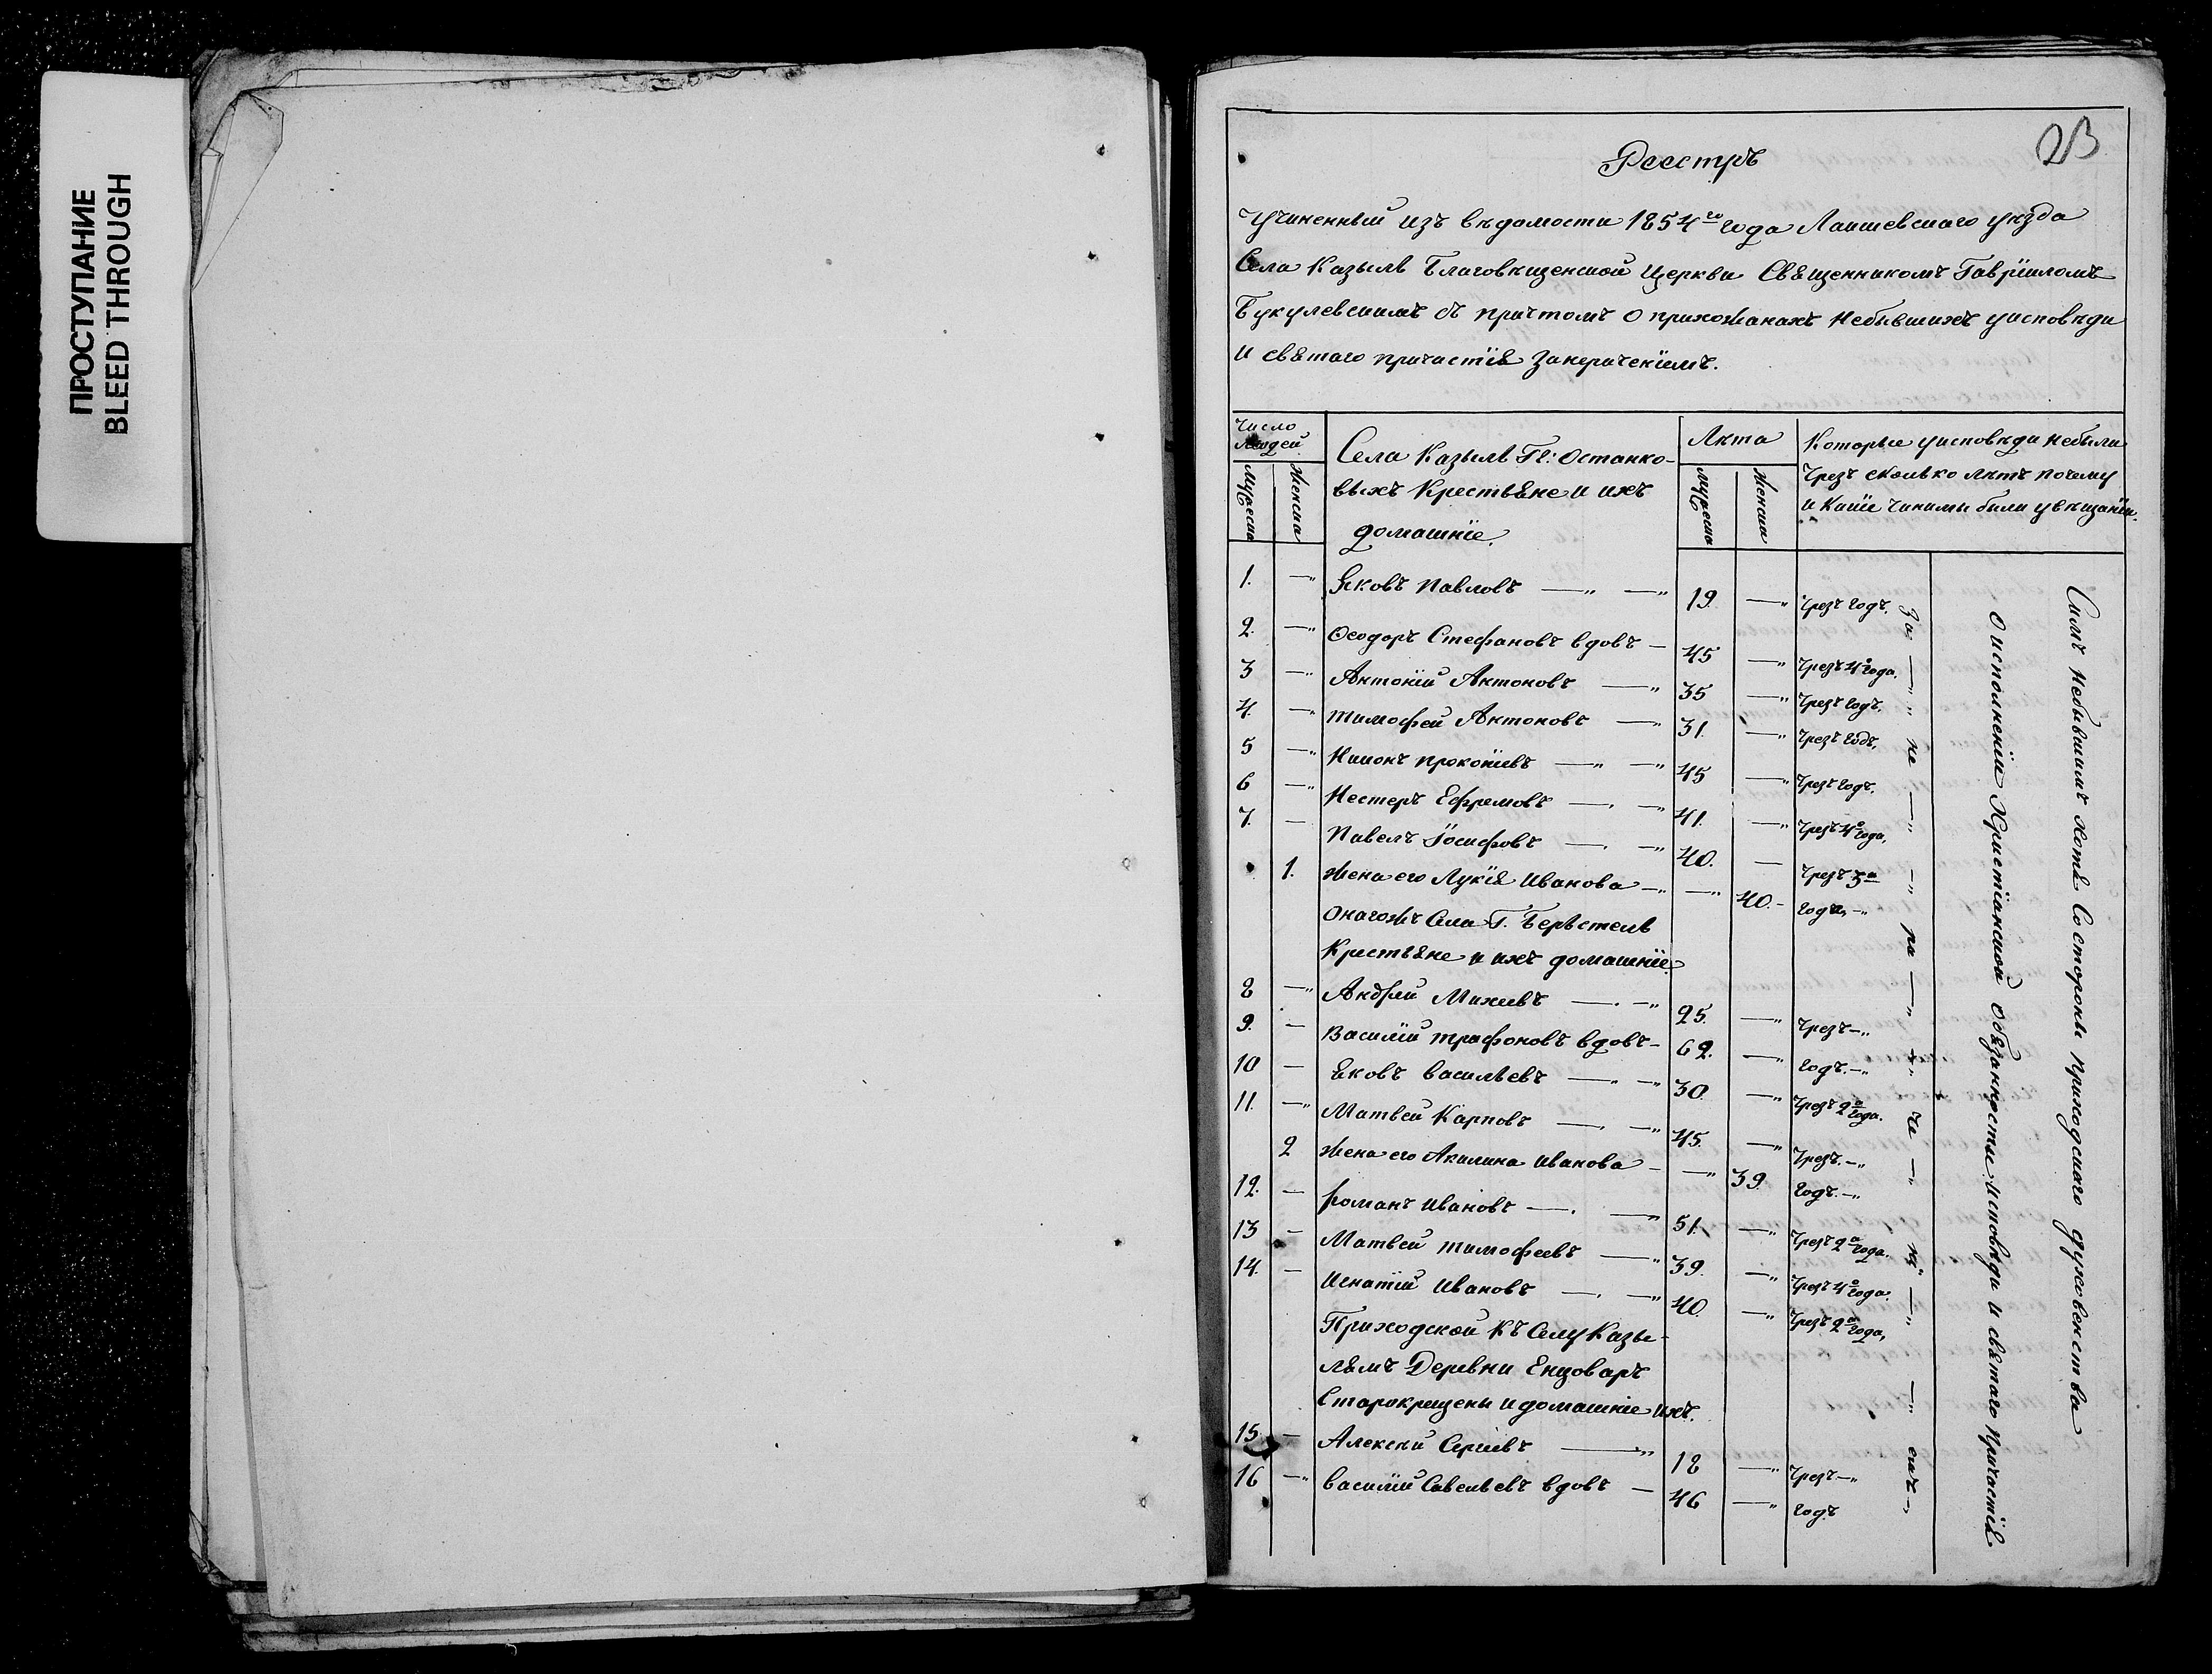 ПРОСТУПАНИЕ
BLEED THROUGH
23
Реестръ
Учиненный изъ вѣдомости 1854го года Лаишевскаго уѣзда
Села Казыль Благовѣщенской Церкви Священникомъ Гаврїиломъ
Букулевскимъ съ причтомъ о прихожанахъ небывшихъ уисповѣди
и святаго причастїя занераченїемъ.
Число Людей.
Мужеска
Женска
Села Казыль Гг: Останко-
выхъ Крестьяне и ихъ
домашнїе.
Лѣта
Мужеска
Женска
Которые уисповѣди небыли
Чрезъ сколько лѣтъ почему
и Какїе чинимы были увѣщанїи.
1. —„ Яковъ Павловъ —„ —„ 19. —„ Чрезъ годъ.
2. —„ Ѳеодоръ Стефановъ вдовъ — 45 —„ Чрезъ 4а года.
3 —„ Антонїй Антоновъ —„ 35 —„ Чрезъ годъ.
4. —„ Тимофей Антоновъ —„ 31. —„ Чрезъ годъ,
5 —„ Никонъ Прокопїевъ —„ —„ 45 —„ Чрезъ годъ.
6 —„ Нестеръ Ефремовъ —. —„ 41. —„ Чрезъ 4а года,
7. — Павелъ Їосифовъ —. —„ 40. — Чрезъ 3а
1. Жена его Лукїя Иванова —„ —„ 40.- года, —„
Онагожъ Села Г. Берѣстель
Крестьяне и ихъ домашнїе
8 —„ Андрей Михеевъ —. —„ 25. —„ Чрезъ —„
9. — Василїй Трафоновъ вдовъ — 62. —„ годъ. —„
10 — Яковъ Васильевъ —. —„ 30. —„ Чрезъ 2а года.
11. —„ Матвей Карповъ —. —„ 45. —„ Чрезъ. —„
2 Жена его Акилина Иванова — —„ 39. годъ. —„
12. — Романъ Ивановъ —. —„ 51. —„ Чрезъ 2а года.
13 — Матвей Тимофеевъ —„ 39. —„ Чрезъ 4а года.
14. — Игнатїй Ивановъ —. —„ 40. —„ Чрезъ 2а года,
Приходской къ Селу Казы-
лямъ Деревни Енцоваръ
Старокрещены и домашнїе ихъ.
15. — Алексѣй Сергїевъ —„ 18 —„ Чрезъ —„
16 —„ Василїй Савельевъ вдовъ — 46 —„ годъ
За —„ не —„ —„ ра —„ —„ че —„ нї —„ —„ емъ —„
О исполненїи Христїанской Обязанности Исповѣди и святаго Причастїя
Симъ небывшимъ хотя Состороны приходскаго духовенства